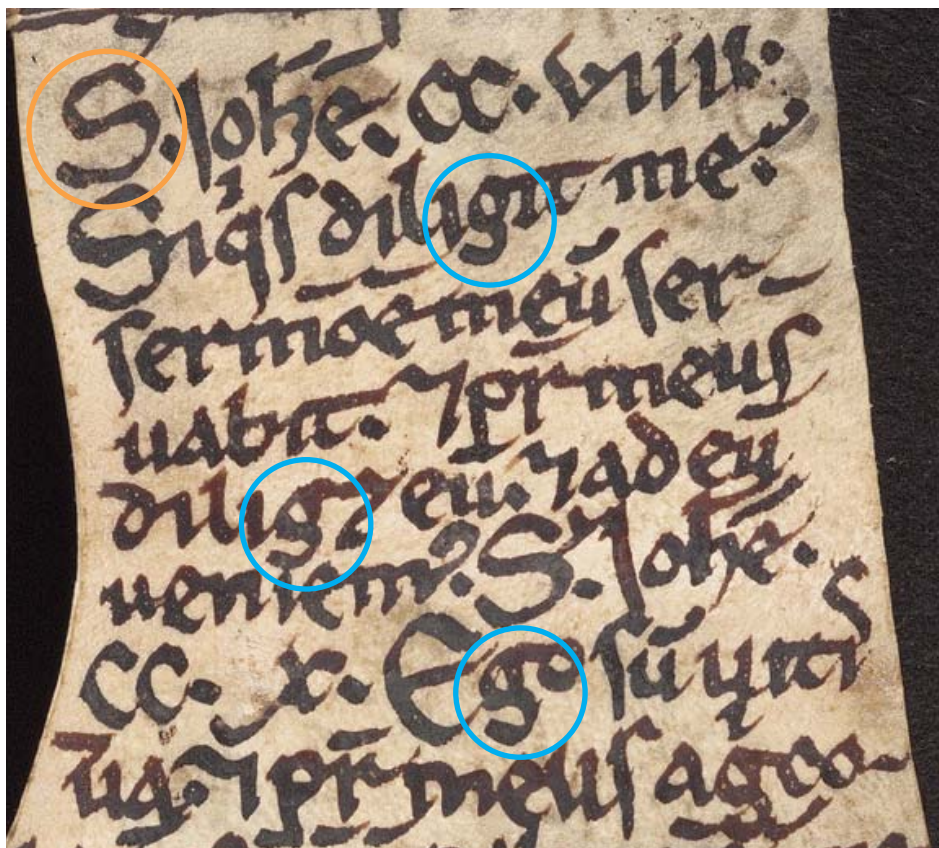 S. Johē. CC. VIIII.
Siqͥs diligit me.
sermōē meū ser-
uabit. ⁊ pr̄ meus
diligꝫ eū. ⁊ ad eū
ueniemꝰ. S. Johē.
CC. X. Ego sū uiti
uª. ⁊ pr̄ meus agco-